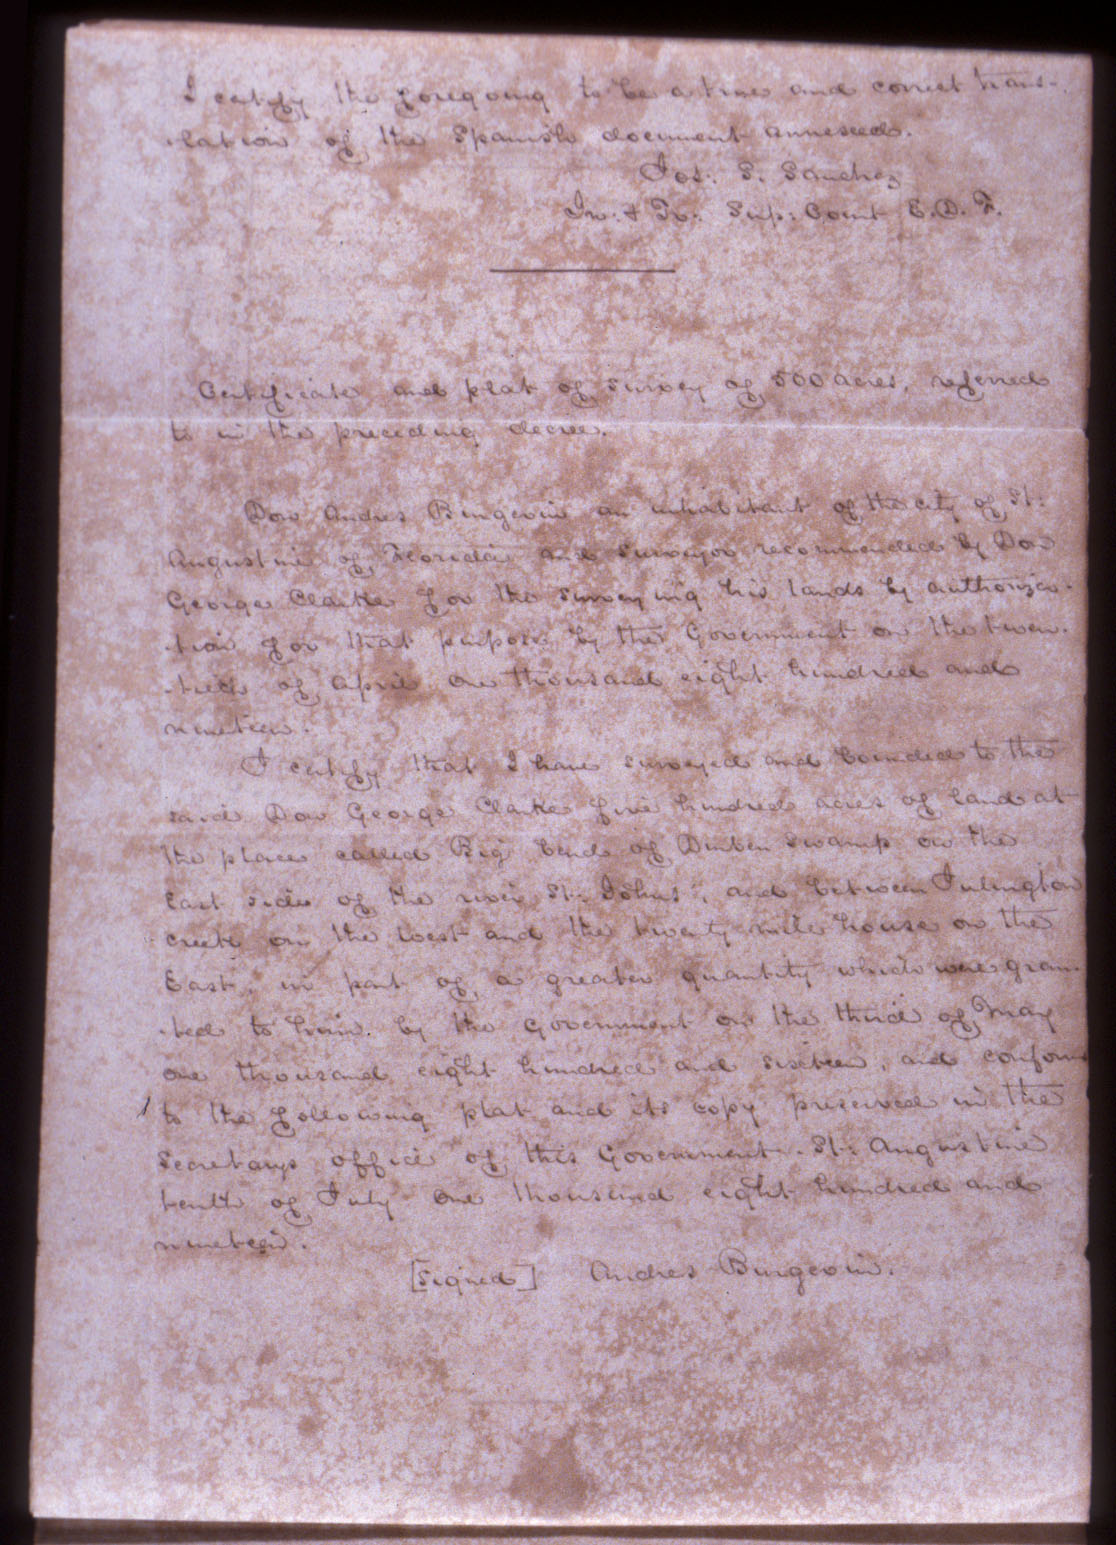 I certify the foregoing to be a true and correct trans-
-lation of the Spanish document annexed.
Jos: S. Sanchez
In. & Tr. Sup: Court E.D.F.
Certificate and plat of survey of 500 acres, referred
to in the preceding decree.
Don Andres Burgevin an inhabitant of the city of St:
Augustine of Florida and surveyor recommended by Don
George Clarke for the surveying his lands by authoriza-
-tion for that purpose by the Government on the twen-
-tieth of April one thousand eight hundred and
nineteen.
I certify that I have surveyed and bounded to the
said Don George Clarke five hundred acres of land at
the place called Big bend of Durbin swamp on the
East side of the river St: Johns, and between Julington
creek on the West and the twenty mile house on the
East, in part of a greater quantity which were gran-
-ted to him by the Government on the third of May
one thousand eight hundred and sixteen, and conform
to the following plat and its copy preserved in the
Secretarys office of this Government. St: Augustine
tenth of July one thousand eight hundred and
nineteen.
[signed] Andres Burgevin.